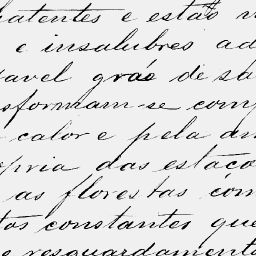 hatentes e estão
e insalubres ad
avel gráo de sa
sformam-se comp
calor e pela
opria das estaço
as florestas com
tos constantes que
e resguardamento